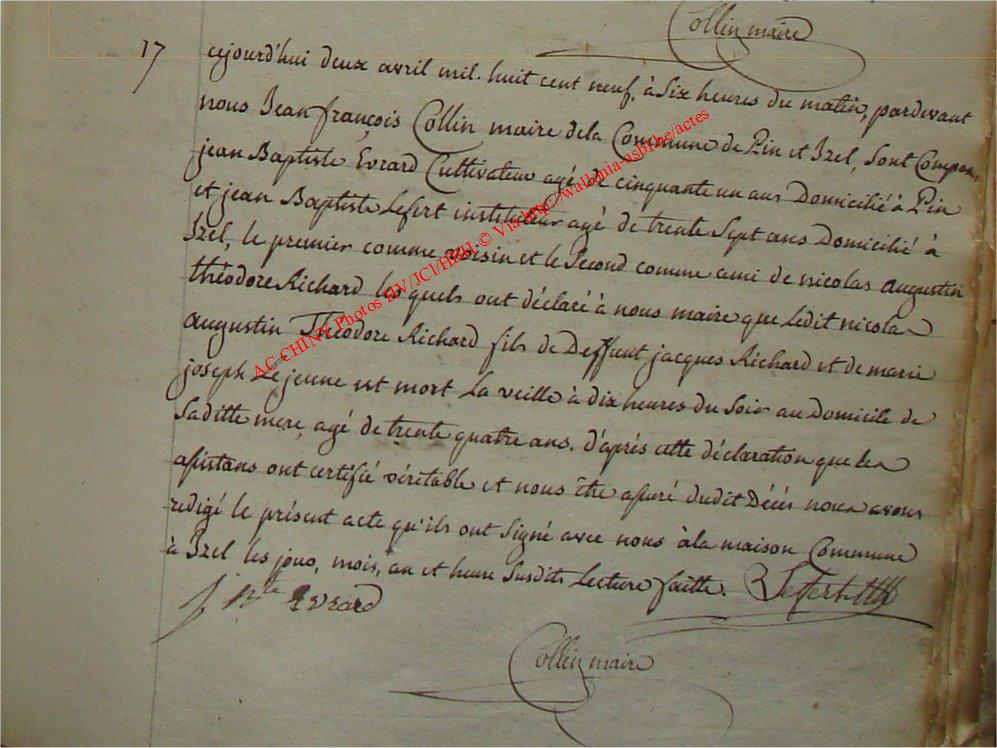 Collin maire
17
cejourd'hui deux avril mil. huit cent neuf, à Six heures du matin, pardevant
nous Jean françois Collin maire dela Commune de Pin et Izel, sont Comparus
jean Baptiste Evrard Cultivateur agé de cinquante un ans Domicilié à Pin
et jean Baptiste Lefert instituteur agé de trente Sept ans Domicilié à
Izel, le premier comme voisin et le Second comme ami de nicolas augustin
théodore Richard les quels ont déclaré à nous maire que Ledit nicolas
augustin Théodore Richard fils de Deffunt jacques Richard et de marie
joseph Lejeune est mort La veille à dix heures du Soir au Domicile de
Saditte mere, agé de trente quatre ans. d'après cette déclaration que les
assistans ont certifié véritable et nous être assuré dudit Décés nous avons
redigé le présent acte qu'ils ont Signé avec nous àla maison Commune
à Izel les jour, mois, an et heure Susdits Lecture faitte. Lefert
J Bte Evrard
Collin maire
AC-CHINY Photos HV/JC1/HRH © Via http://wallonia-asbl.be/actes